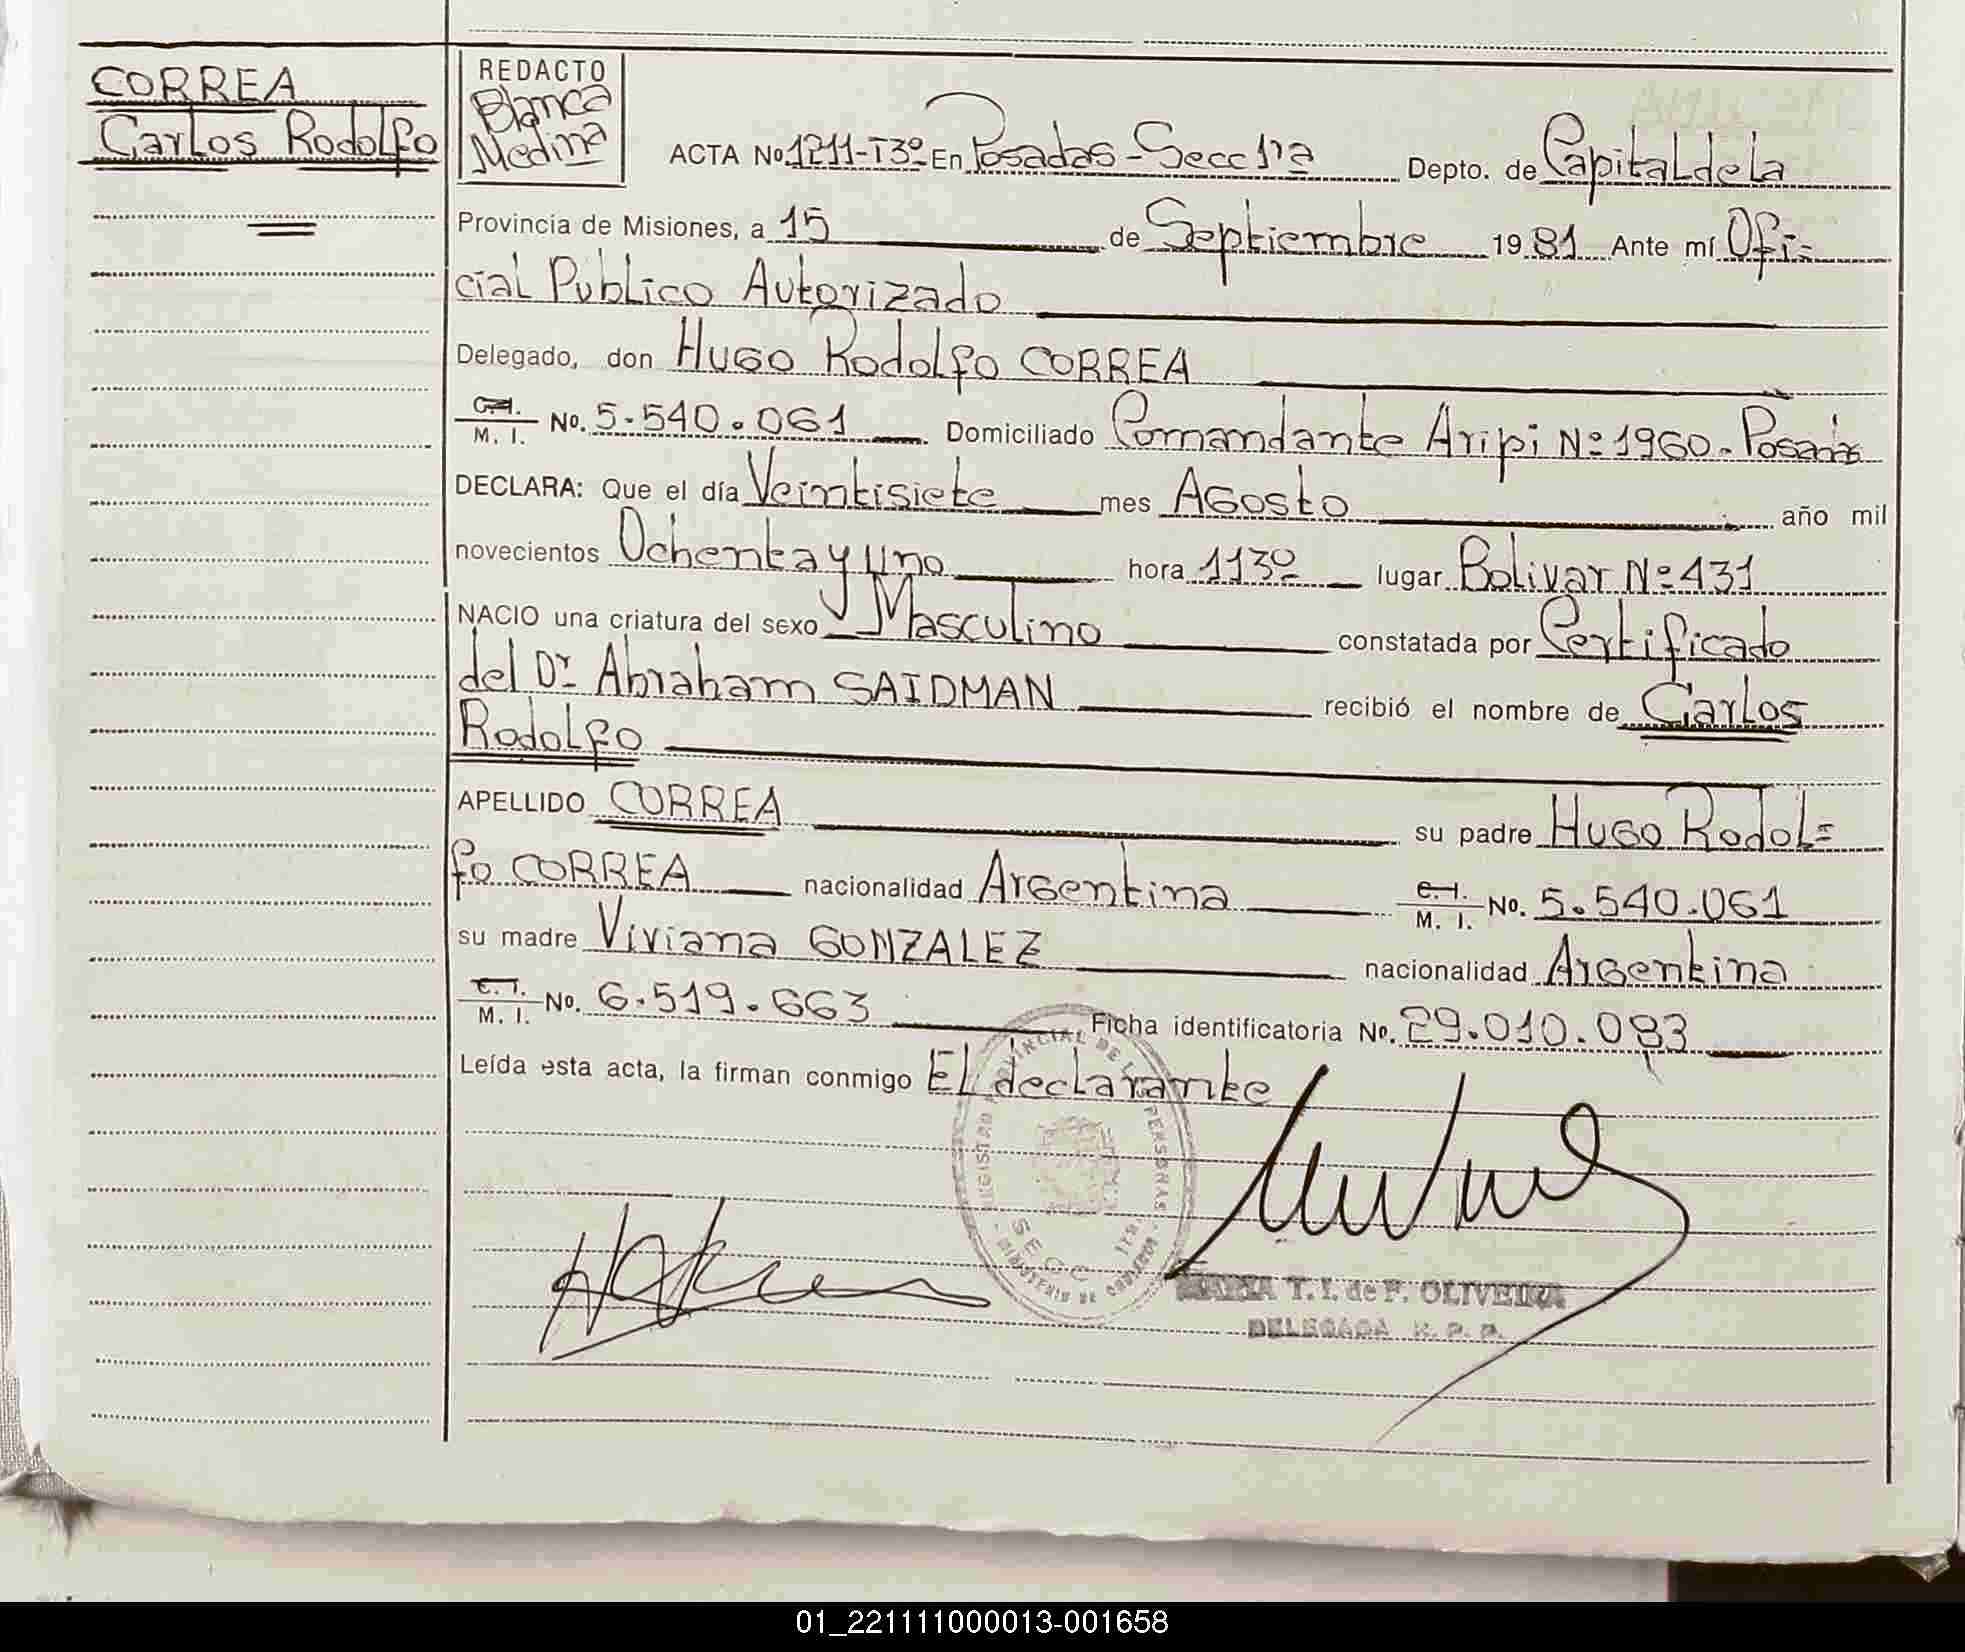 CORREA
Carlos Rodolfo
REDACTO
Blanca
Medina
ACTA No. 1211-T3º En Posadas - Secc 1ra Depto. de Capital de la
Provincia de Misiones, a 15 de Septiembre 1981 Ante mí Ofi=
cial Publico Autorizado
Delegado, don Hugo Rodolfo CORREA
C.I.
M. I. No. 5.540.061 Domiciliado Comandante Aripi Nº 1960. Posadas
DECLARA: Que el día Veintisiete mes Agosto año mil
novecientos Ochenta y uno hora 1130 lugar Bolivar Nº 431
NACIO una criatura del sexo Masculino constatada por Certificado
del Dr Abraham SAIDMAN recibió el nombre de Carlos
Rodolfo
APELLIDO CORREA su padre Hugo Rodol=
fo CORREA nacionalidad Argentina C.I.
M. I. No. 5.540.061
su madre Viviana GONZALEZ nacionalidad Argentina
C. I.
M. I. No. 6.519.663 Ficha identificatoria No. 29.010.083
Leída esta acta, la firman conmigo El declarante
REGISTRO PROVINCIAL DE LAS PERSONAS
SECC 1ra
MINISTERIO DE GOBIERNO
MARIA T. I. de F. OLIVEIRA
DELEGADA R. P. P.
01_221111000013-001658